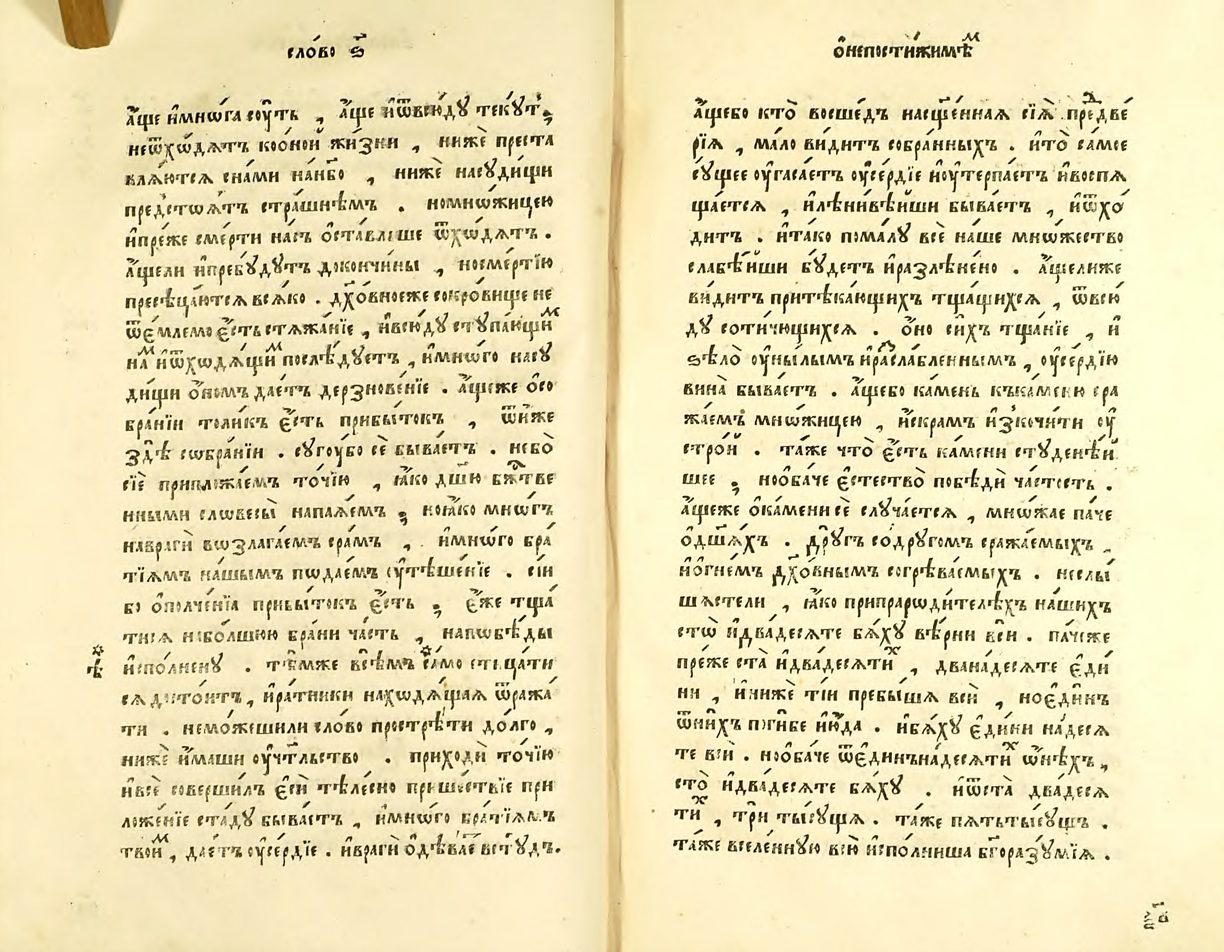 сло́во ѕ҃
а҆́ще и҆мнѡ́га сꙋ́ть , а҆́ще и҆ѿвсю́дꙋ текꙋ́т ,
неѿхѡ́дѧтъ коѻ́ной жи́зни , нижѐ преста
влѧ́ютсѧ сна́ми на́нбо , нижѐ насꙋди́щи
предстоѧ́тъ стра́шнѣмъ . номнѡ́жицею
и҆пре́же сме́рти на́съ ѻ҆ста́вльше ѿхѡ́дѧтъ .
а҆́щели и҆пребꙋ́дꙋтъ докончи́ны , носме́ртїю
пресѣца́ютсѧ всѧ́ко . дх҃о́вноеже сокро́вище не
ѿе́млемо є҆́сть стѧжа́нїе , и҆всю́дꙋ стꙋпа́ющи м
на м и҆ѿхѡдѧ́щи м послѣ́дꙋетъ , и҆мно́го насꙋ
ди́щи ѻ҆́номъ дае́тъ дерзнове́нїе . а҆́щеже ѻ҆со
бра́нїи толи́къ є҆́сть прибы́токъ , ѿи́же
здѣ̀ собра́нїи . сꙋгꙋ́бо сѐ быва́етъ . небо̀
сїѐ прилага́емъ то́чїю , ꙗ҆́ко дш҃ю бж҃тве
нными словесы̀ напаѧ́емъ ; ноꙗ҆́ко мно́гъ
наврагѝ возлага́емъ сра́мъ , и҆мно́го бра
тїѧмъ на́шымъ подае́мъ ᲂу҆тѣше́нїе . сїи
бо ѻ҆полче́нїѧ прибы́токъ є҆́сть ; є҆́же тща́
тисѧ наболшюю бра́ни ча́сть , напобѣ́ды
и҆спо́лненꙋ . тѣ́мже всѣ́мъ са́мо стица́ти
сѧ досто́итъ , и҆ра́тники находѧ́щаѧ ѿража́
ти . немо́жешили сло́во простре́ти до́лго ,
нижѐ и҆́маши ᲂу҆чт҃льство . приходѝ то́чїю
и҆всѐ соверши́лъ є҆сѝ тѣле́сно прише́ствїе при
ложе́нїе ста́дꙋ быва́етъ , и҆мно́го бра́тїѧмъ
твои м , дае́тъ ᲂу҆се́рдїе . и҆врагѝ ѻ҆дѣва́е встꙋ́дъ .
ѣ҃
ѻ҆непостижи́мѣ м
а҆́щебо кто̀ восше́дъ насщ҃е́ннаѧ сїѧ̀ предве́
рїѧ , ма́ло ви́дитъ со́бранныхъ . и҆то̀ са́мое
сꙋ́щее ᲂу҆гаса́етъ ᲂу҆се́рдїе и҆ᲂу҆терпа́етъ и҆воспѧ
ща́етсѧ , и҆лѣни́вѣйши быва́етъ , и҆ѿхо́
дитъ . и҆та́ко пома́лꙋ всѐ на́ше мно́жество
слабѣ́йши бꙋ́детъ и҆разлѣ́нено . а҆́щелиже
ви́дитъ притѣка́ющихъ тща́щихсѧ , ѿвсю́
дꙋ сотича́ющихсѧ . ѻ҆́но си́хъ тща́нїе , и҆
ѕѣло̀ ᲂу҆ны́лымъ и҆раcла́бленнымъ , ᲂу҆се́рдїю
вина̀ быва́етъ . а҆́щебо ка́мень кька́меню сра
жа́емъ мно́жицею , и҆́скрамъ и҆зскочи́ти ᲂу҆
стро́и . та́же что̀ є҆́сть ка́мени стꙋденѣ́й
шее ; ноѻ҆ба́че є҆стество̀ побѣдѝ ча́стость .
а҆́щеже ѻ҆ка́мени сѐ слꙋча́етсѧ , мно́жае па́че
ѻ҆дш҃а́хъ . дрꙋ́гъ содрꙋ́гомъ сража́емыхъ ,
и҆ѻ҆гне́мъ дх҃о́внымъ согрѣва́емыхъ . неслы́
шастели , ꙗ҆́ко припрароди́телѣхъ на́шихъ
сто̀ и҆два́десѧте бѧ́хꙋ вѣ́рни всѝ . па́чеже
пре́же ста̀ и҆два́десѧти х , двана́десѧте є҆ди́
ни , и҆нижѐ ті́и пребы́шѧ всѝ , ноє҆ди́нъ
ѿни́хъ поги́бе и҆ю́да . и҆бѧ́хꙋ є҆ди́ни на́десѧ
те всѝ . ноѻ҆ба́че ѿє҆ди́нъна́десѧти х ѡ҆нѣ́хъ ,
сто̀ и҆два́десѧте бѧ́хꙋ . и҆ѿста̀ два́десѧ
ти х , трѝ ты́сꙋщѧ . та́же пѧ́тьты́сꙋщъ .
та́же вселе́ннꙋю всю̀ и҆спо́лниша бг҃оразꙋ́мїѧ .